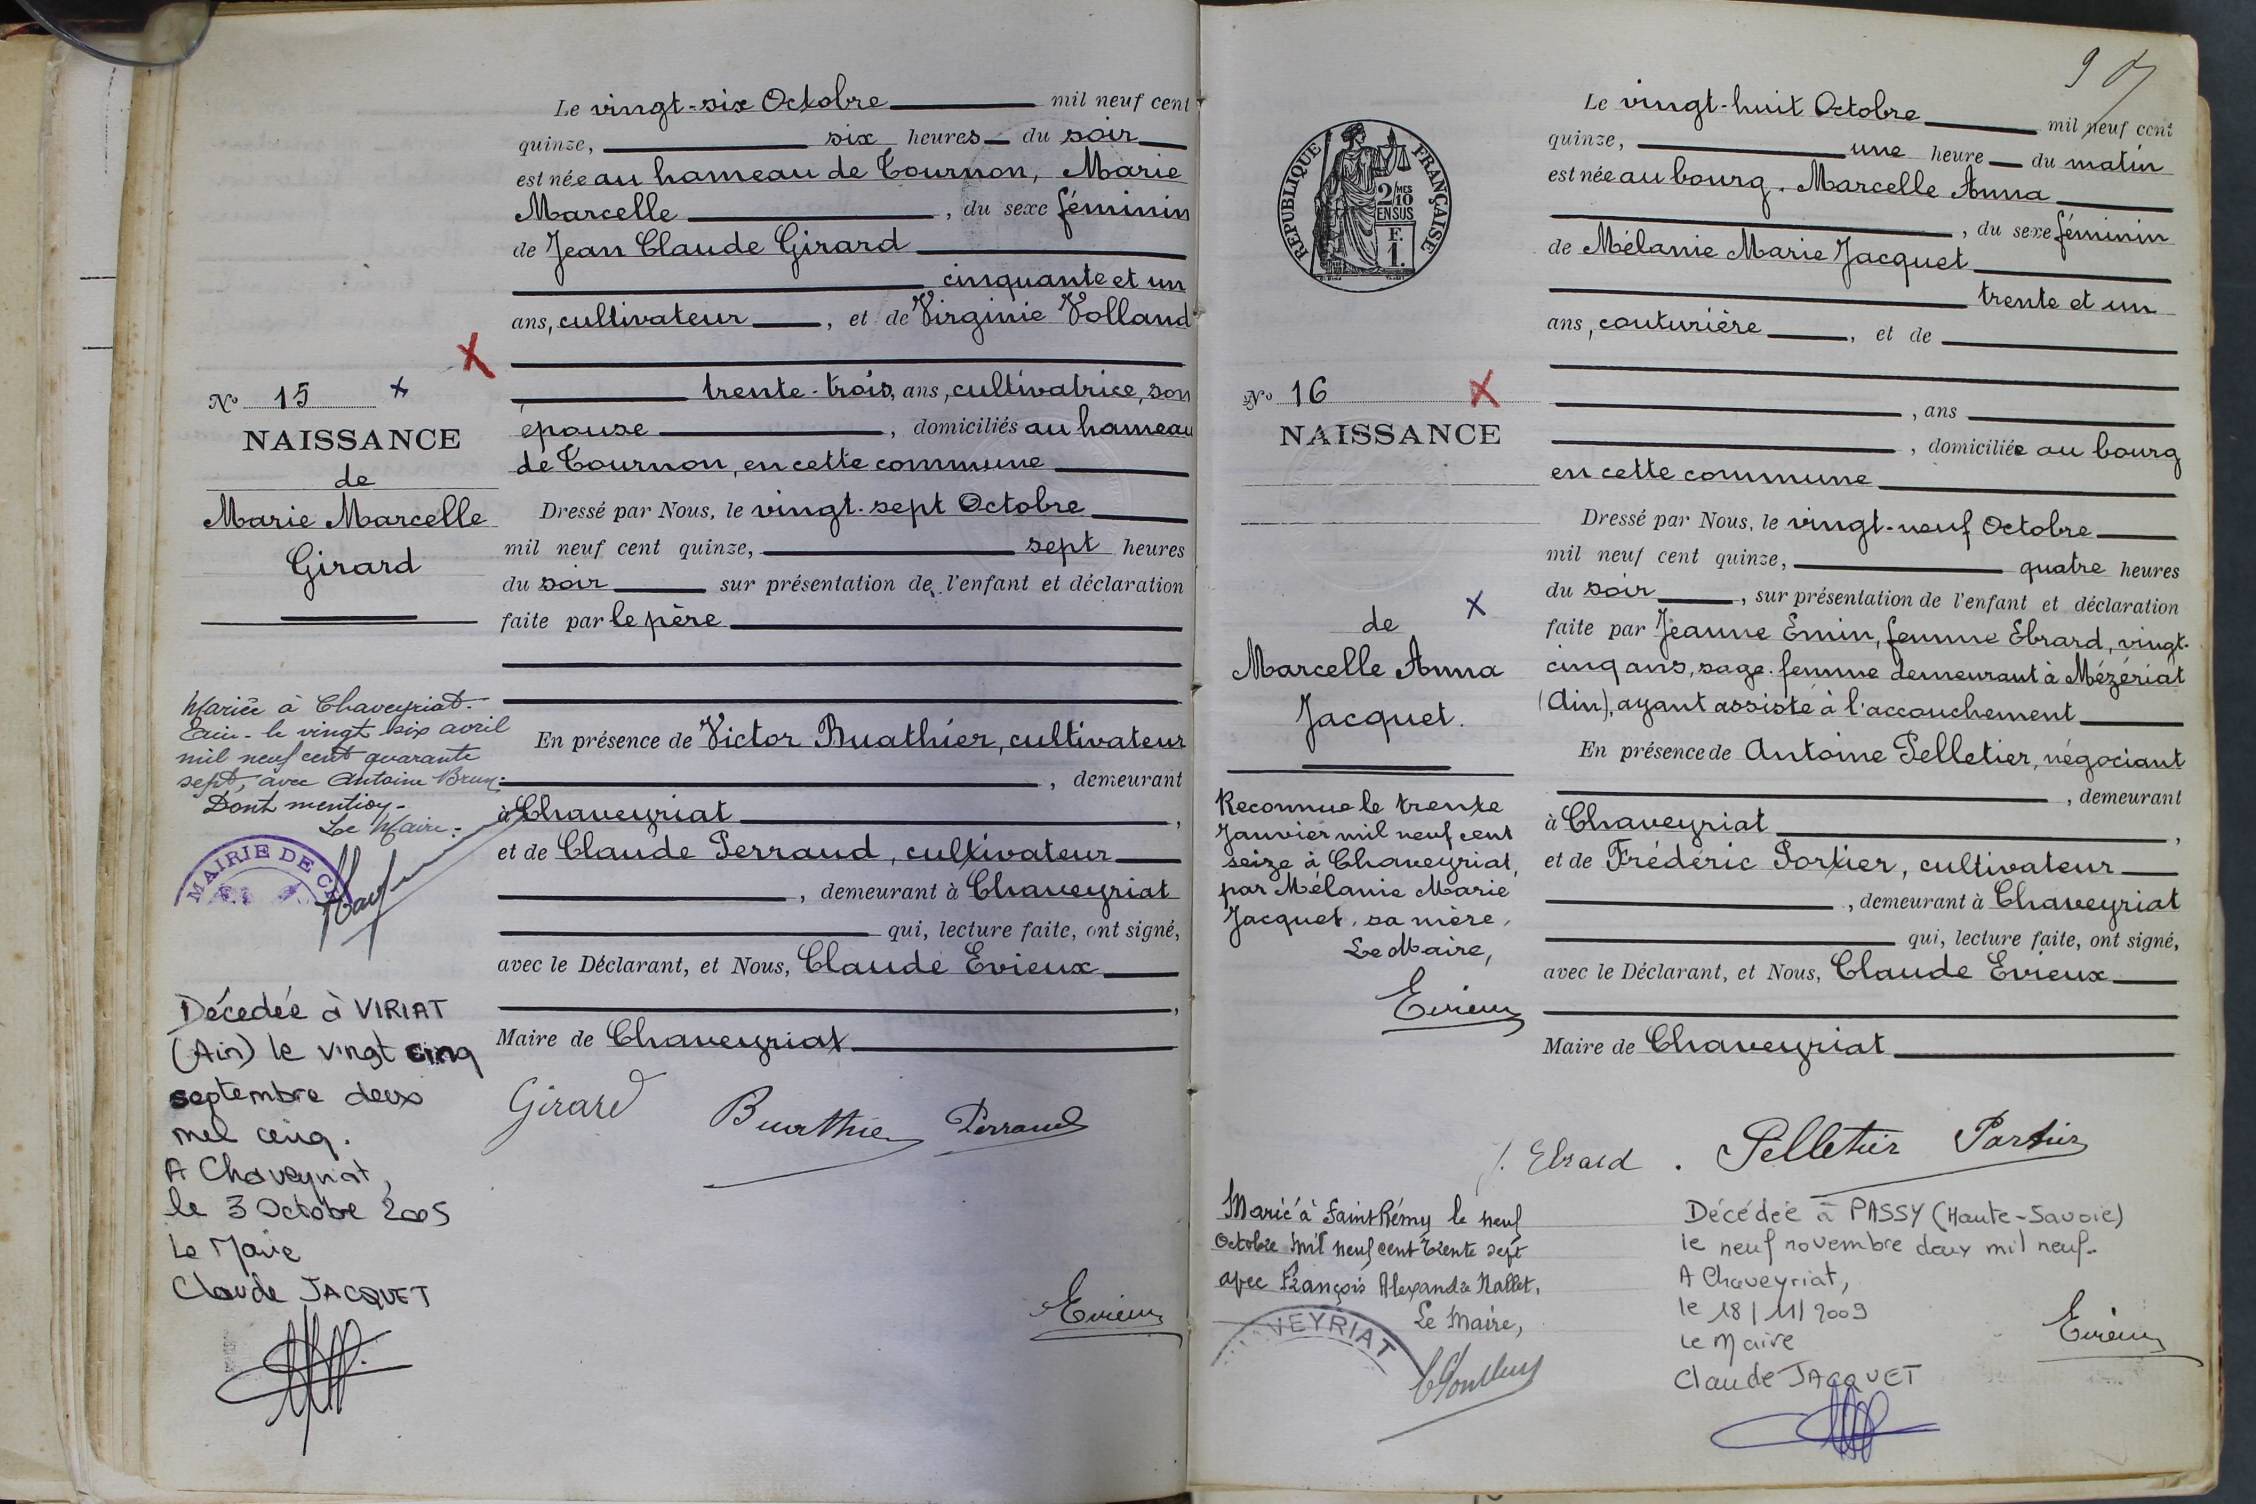 Le vingt-six Octobre mil neuf cent
quinze, six heures du soir
est née au hameau de Tournon, Marie
Marcelle , du sexe féminin
de Jean Claude Girard
cinquante et un
ans, cultivateur , et de Virginie Volland
trente-trois, ans, cultivatrice, son
épouse , domiciliés au hameau
de Tournon, en cette commune
Dressé par Nous, le vingt-sept Octobre
mil neuf cent quinze, sept heures
du soir sur présentation de l'enfant et déclaration
faite par le père
En présence de Victor Buathier, cultivateur
, demeurant
à Chaveyriat ,
et de Claude Perraud, cultivateur
, demeurant à Chaveyriat
qui, lecture faite, ont signé,
avec le Déclarant, et Nous, Claude Evieux
,
Maire de Chaveyriat
Girard Buathier Perraud
Evieux
No 15
NAISSANCE
de
Marie Marcelle
Girard
Mariée à Chaveyriat.
Ain - le vingt six avril
mil neuf cent quarante
sept, avec Antoine
Dont mention -
Le Maire :
MAIRIE DE
Décédée à VIRIAT
(Ain) le vingt cinq
septembre deux
mil cinq.
A Chaveyriat,
le 3 Octobre 2005
Le Maire
Claude JACQUET
Le vingt-huit Octobre mil neuf cent
quinze, une heure du matin
est née au bourg. Marcelle Anna
, du sexe féminin
de Mélanie Marie Jacquet
trente et un
ans, couturière , et de
, ans
, domiciliée au bourg
en cette commune
Dressé par Nous, le vingt-neuf Octobre
mil neuf cent quinze, quatre heures
du soir , sur présentation de l'enfant et déclaration
faite par Jeanne Emin, femme Ebrard, vingt-
cinq ans, sage-femme demeurant à Mézériat
(Ain), ayant assisté à l'accouchement
En présence de Antoine Pelletier, négociant
, demeurant
à Chaveyriat ,
et de Frédéric Portier, cultivateur
, demeurant à Chaveyriat
qui, lecture faite, ont signé,
avec le Déclarant, et Nous, Claude Evieux
Maire de Chaveyriat
J. Ebrard . Pelletier Portier
Evieux
RÉPUBLIQUE FRANÇAISE
2/10 MES
EN SUS
F.
1.
No 16
NAISSANCE
de
Marcelle Anna
Jacquet.
Reconnue le trente
Janvier mil neuf cent
seize à Chaveyriat,
par Mélanie Marie
Jacquet, sa mère,
Le Maire,
Evieux
Marié à Saint Rémy le neuf
Octobre mil neuf cent trente sept
avec François Alexandre Nallet.
Le Maire,
CHAVEYRIAT
Décédée à PASSY (Haute-Savoie)
le neuf novembre deux mil neuf.
A Chaveyriat,
le 18/11/2009
Le Maire
Claude JACQUET